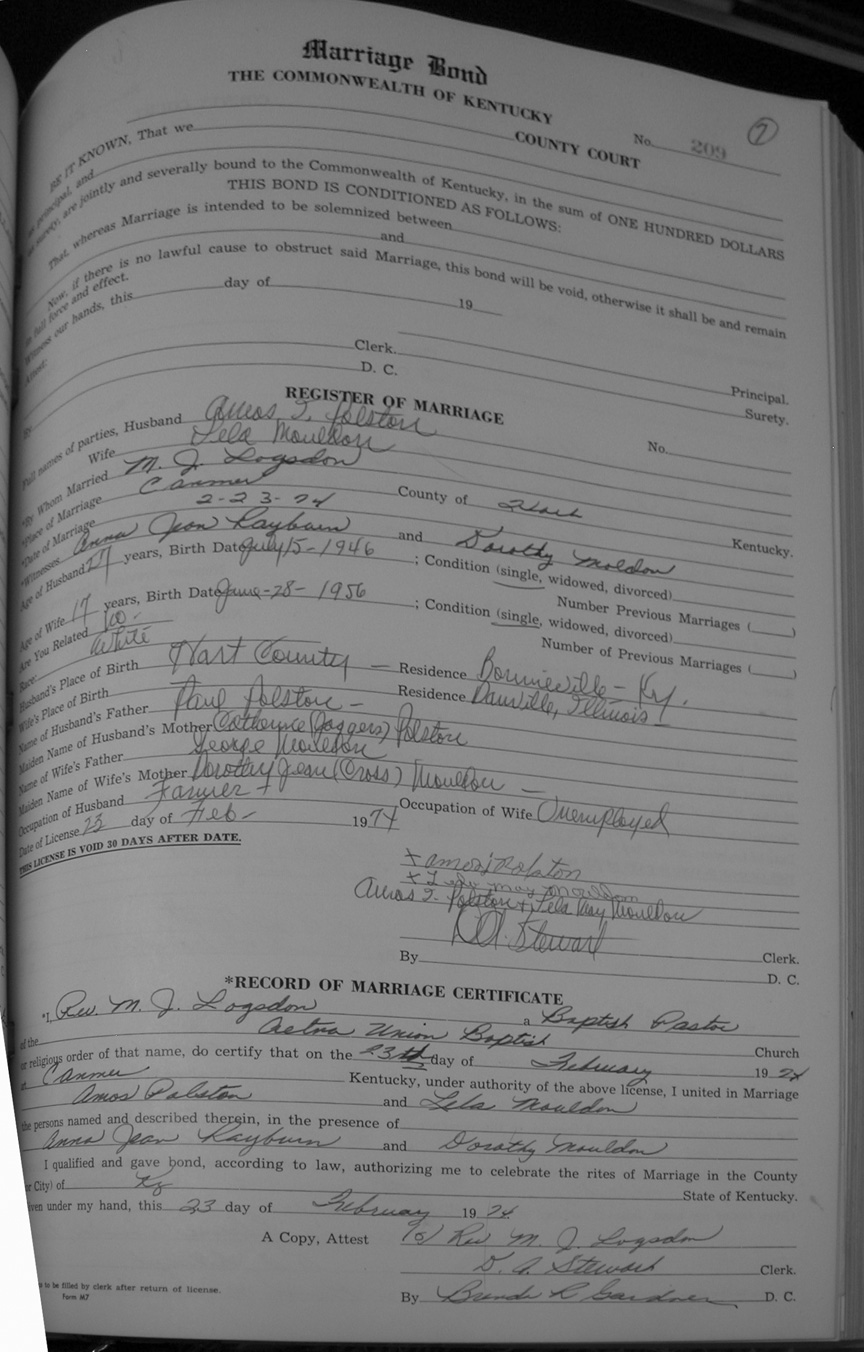 Marriage Bond
THE COMMONWEALTH OF KENTUCKY
No. 209
7
COUNTY COURT
BE IT KNOWN, That we
as principal, and
as surety, are jointly and severally bound to the Commonwealth of Kentucky, in the sum of ONE HUNDRED DOLLARS
THIS BOND IS CONDITIONED AS FOLLOWS:
That, whereas Marriage is intended to be solemnized between
and
Now, if there is no lawful cause to obstruct said Marriage, this bond will be void, otherwise it shall be and remain
in full force and effect.
Witness our hands, this day of 19
Attest:
Clerk. Principal.
By D. C. Surety.
REGISTER OF MARRIAGE
Full names of parties, Husband Amos T. Polston No.
Wife Lela Mouldon
*By Whom Married M. J. Logsdon
*Place of Marriage Canmer County of Hart Kentucky.
*Date of Marriage 2-23-74
*Witnesses Anna Jean Rayburn and Dorothy Moldon
Age of Husband 27 years, Birth Date July 15-1946; Condition (single, widowed, divorced)
Number Previous Marriages ( )
Age of Wife 17 years, Birth Date June-28-1956; Condition (single, widowed, divorced)
Are You Related No- Number of Previous Marriages ( )
Race: White
Husband's Place of Birth Hart County — Residence Bonnieville - Ky.
Wife's Place of Birth Residence Danville, Illinois -
Name of Husband's Father Paul Polston -
Maiden Name of Husband's Mother Catherine (Jaggers) Polston
Name of Wife's Father George Mouldon
Maiden Name of Wife's Mother Dorothy Jean (Cross) Mouldon —
Occupation of Husband Farmer + Occupation of Wife Unemployed
Date of License 23 day of Feb- 1974
THIS LICENSE IS VOID 30 DAYS AFTER DATE.
x amos Polston
x Lela may mouldon
Amos T. Polston + Lela May Mouldon
D.A. Stewart Clerk.
By D. C.
*RECORD OF MARRIAGE CERTIFICATE
*I, Rev. M. J. Logsdon a Baptist Pastor
of the Aetna Union Baptist Church
or religious order of that name, do certify that on the 23th day of February 1974
at Canmer Kentucky, under authority of the above license, I united in Marriage
Amos Polston and Lela Mouldon
the persons named and described therein, in the presence of
Anna Jean Rayburn and Dorothy Mouldon
I qualified and gave bond, according to law, authorizing me to celebrate the rites of Marriage in the County
(or City) of Ky State of Kentucky.
Given under my hand, this 23 day of February 1974
A Copy, Attest (s) Rev M. J. Logsdon
D. A. Stewart Clerk.
By Brenda R Gardner D. C.
to be filled by clerk after return of license.
Form M7